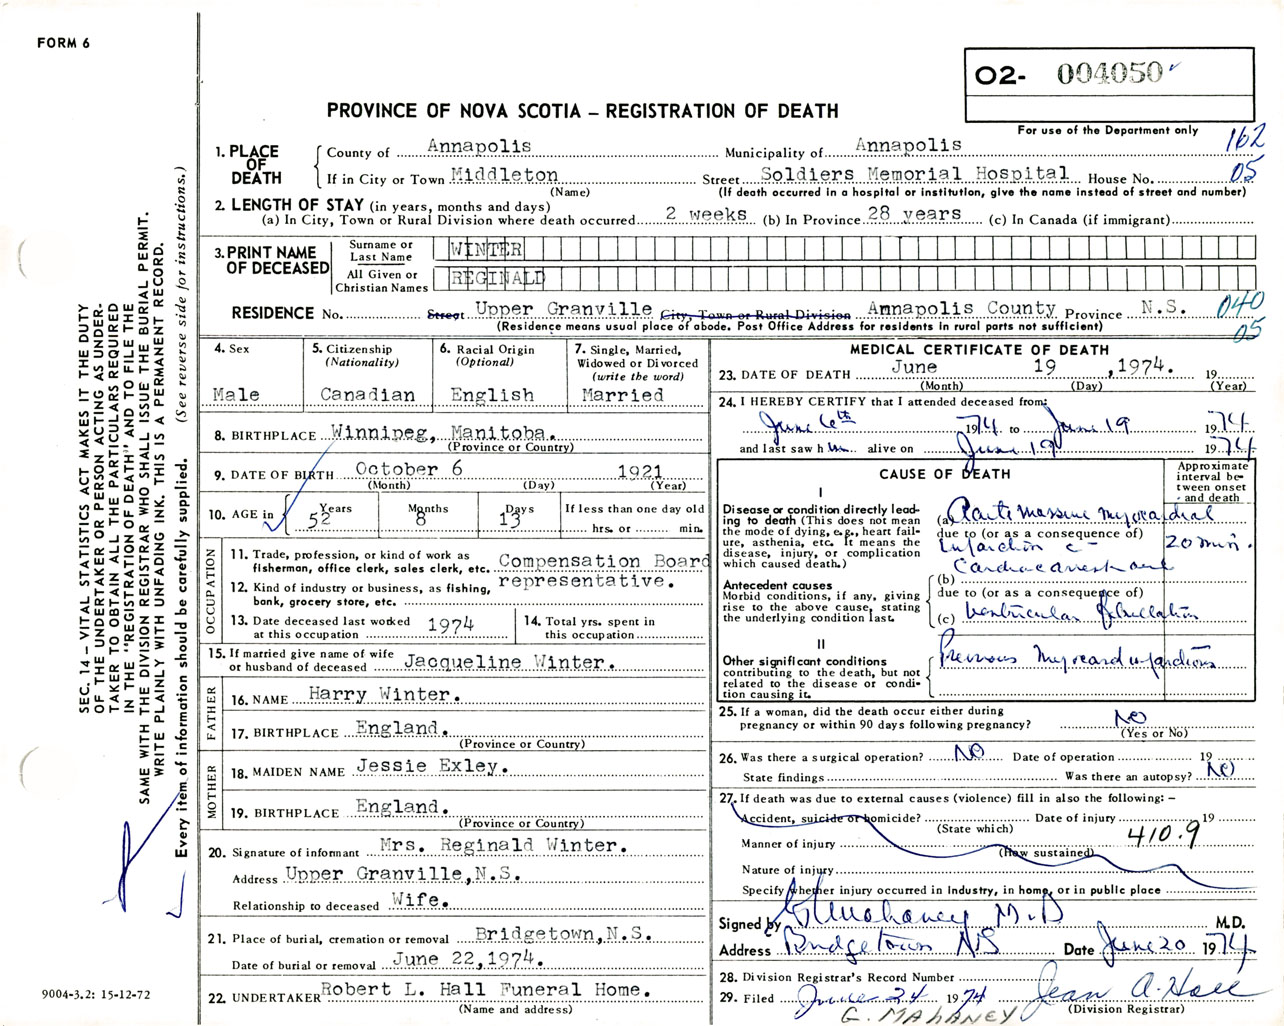 FORM 6
O2- 004050
For use of the Department only
PROVINCE OF NOVA SCOTIA – REGISTRATION OF DEATH
162
05
1. PLACE OF DEATH
County of Annapolis Municipality of Annapolis
If in City or Town Middleton Street Soldiers Memorial Hospital House No.
(Name) (If death occurred in a hospital or institution, give the name instead of street and number)
2. LENGTH OF STAY (in years, months and days)
(a) In City, Town or Rural Division where death occurred 2 weeks (b) In Province 28 years (c) In Canada (if immigrant)
3. PRINT NAME OF DECEASED
Surname or Last Name WINTER
All Given or Christian Names REGINALD
RESIDENCE No. Street Upper Granville City, Town or Rural Division Annapolis County Province N.S. 040
05
(Residence means usual place of abode. Post Office Address for residents in rural parts not sufficient)
4. Sex
Male
5. Citizenship
(Nationality)
Canadian
6. Racial Origin
(Optional)
English
7. Single, Married,
Widowed or Divorced
(write the word)
Married
8. BIRTHPLACE Winnipeg, Manitoba.
(Province or Country)
9. DATE OF BIRTH October 6 1921
(Month) (Day) (Year)
10. AGE in Years Months Days If less than one day old
52 8 13 hrs. or min.
OCCUPATION
11. Trade, profession, or kind of work as
fisherman, office clerk, sales clerk, etc. Compensation Board
12. Kind of industry or business, as fishing, representative.
bank, grocery store, etc.
13. Date deceased last worked
at this occupation 1974
14. Total yrs. spent in
this occupation
15. If married give name of wife
or husband of deceased Jacqueline Winter.
FATHER
16. NAME Harry Winter.
17. BIRTHPLACE England.
(Province or Country)
MOTHER
18. MAIDEN NAME Jessie Exley.
19. BIRTHPLACE England.
(Province or Country)
20. Signature of informant Mrs. Reginald Winter.
Address Upper Granville,N.S.
Relationship to deceased Wife.
21. Place of burial, cremation or removal Bridgetown,N.S.
Date of burial or removal June 22,1974.
22. UNDERTAKER Robert L. Hall Funeral Home.
(Name and address)
MEDICAL CERTIFICATE OF DEATH
23. DATE OF DEATH June 19 ,1974. 19
(Month) (Day) (Year)
24. I HEREBY CERTIFY that I attended deceased from:
June 6th 1974 to June 19 1974
and last saw him alive on June 19 1974
CAUSE OF DEATH
Approximate
interval be-
tween onset
and death
I
Disease or condition directly lead-
ing to death (This does not mean
the mode of dying, e.g., heart fail-
ure, asthenia, etc. It means the
disease, injury, or complication
which caused death.)
(a) Acute massive myocardial
due to (or as a consequence of)
infarction c̄ 20 min.
cardiac arrest and
Antecedent causes
Morbid conditions, if any, giving
rise to the above cause, stating
the underlying condition last.
(b)
due to (or as a consequence of)
(c) Ventricular fibrillation
II
Other significant conditions
contributing to the death, but not
related to the disease or condi-
tion causing it.
Previous myocard infarctions
25. If a woman, did the death occur either during
pregnancy or within 90 days following pregnancy? NO
(Yes or No)
26. Was there a surgical operation? NO Date of operation 19
State findings Was there an autopsy? NO
27. If death was due to external causes (violence) fill in also the following: –
Accident, suicide or homicide? Date of injury 19
(State which)
410.9
Manner of injury
(How sustained)
Nature of injury
Specify whether injury occurred in Industry, in home, or in public place
Signed by G Mahaney M.D M.D.
Address Bridgetown NS Date June 20 1974
28. Division Registrar's Record Number
29. Filed June 24 1974 Jean A. Hall
(Division Registrar)
G. MAHANEY
SEC. 14 – VITAL STATISTICS ACT MAKES IT THE DUTY
OF THE UNDERTAKER OR PERSON ACTING AS UNDER-
TAKER TO OBTAIN ALL THE PARTICULARS REQUIRED
IN THE "REGISTRATION OF DEATH" AND TO FILE THE
SAME WITH THE DIVISION REGISTRAR WHO SHALL ISSUE THE BURIAL PERMIT.
WRITE PLAINLY WITH UNFADING INK. THIS IS A PERMANENT RECORD.
Every item of information should be carefully supplied. (See reverse side for instructions.)
9004-3.2: 15-12-72